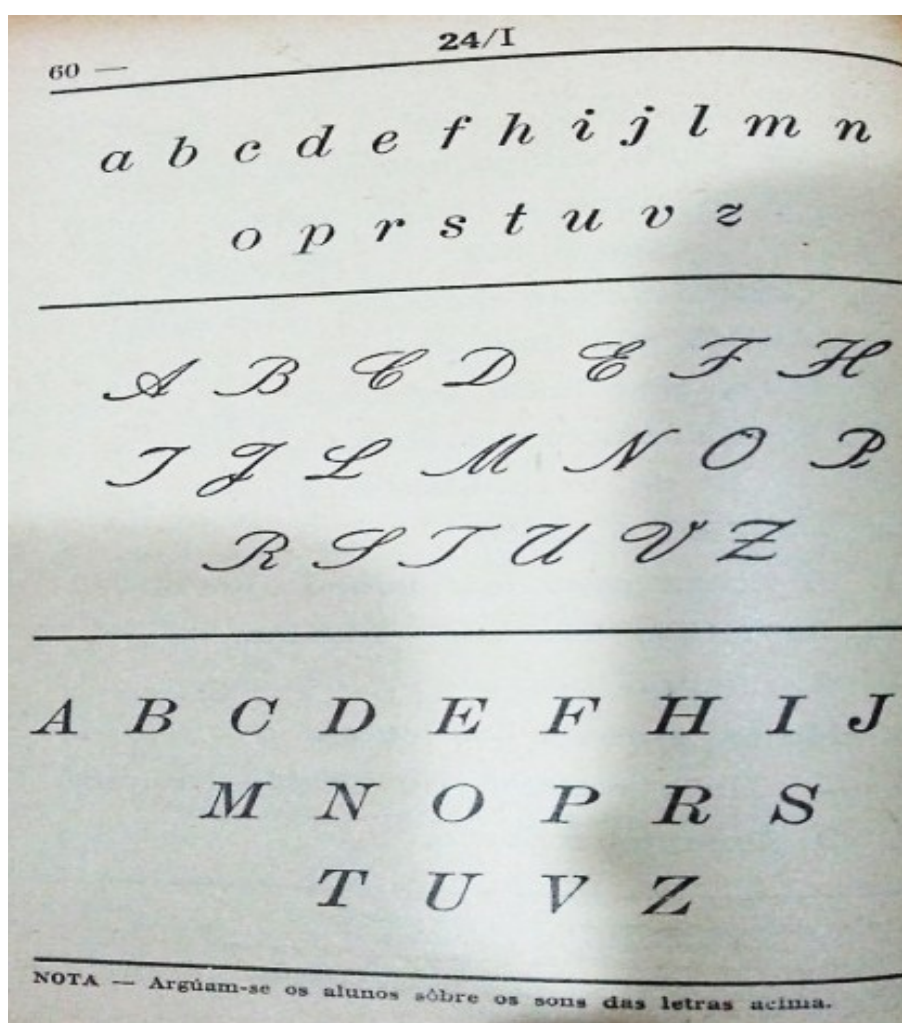 24/I
60 —
a b c d e f h i j l m n
o p r s t u v z
A B C D E F H
I J L M N O P
R S T U V Z
A B C D E F H I J
M N O P R S
T U V Z
NOTA — Argúam-se os alunos sôbre os sons das letras acima.